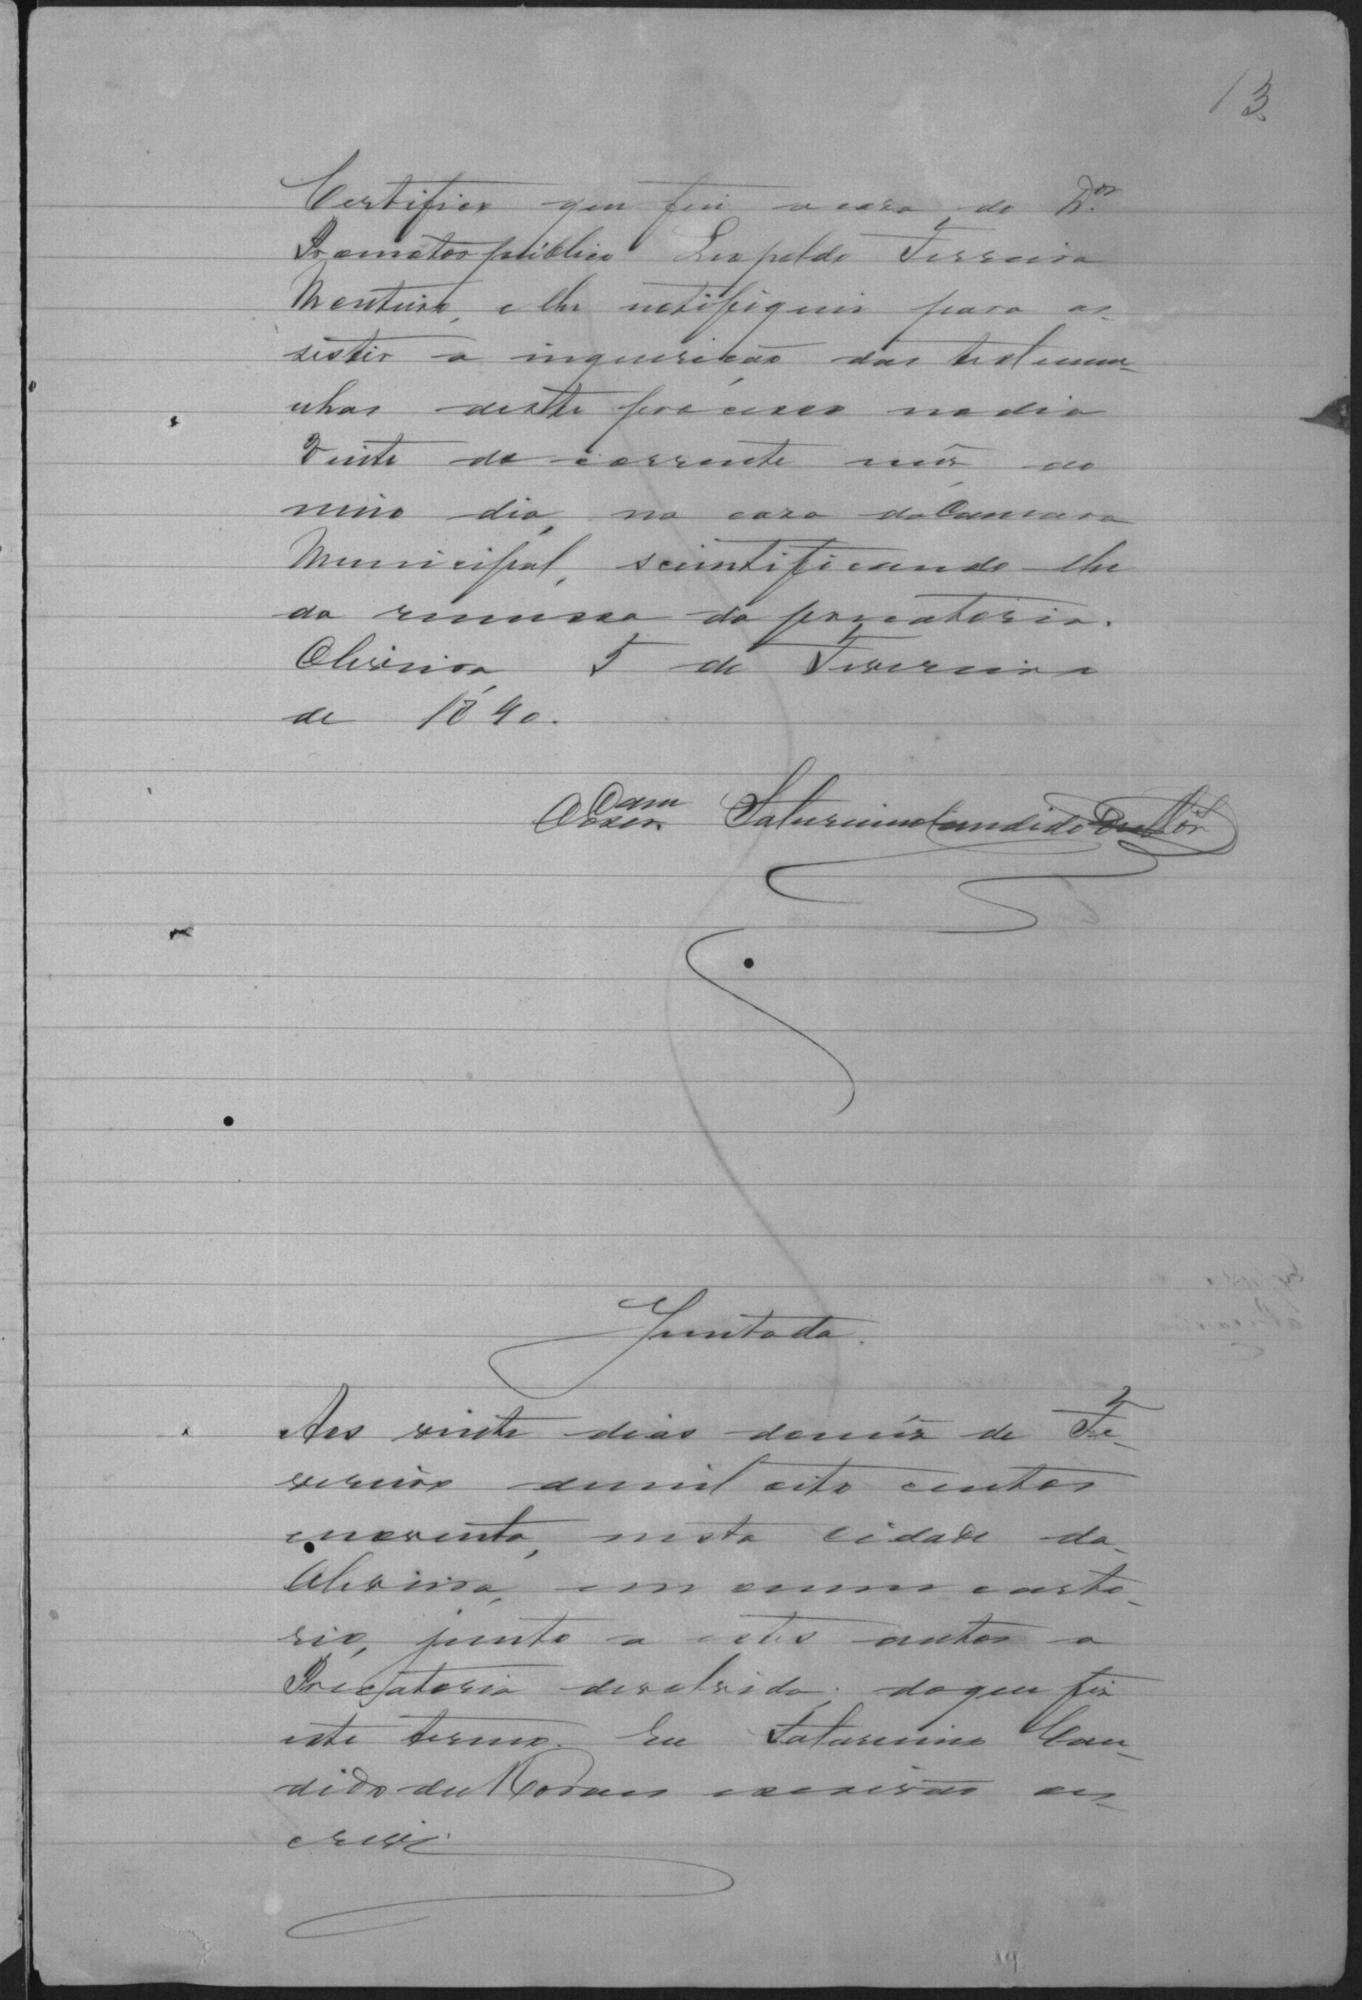 13
Certifico que fui a casa do Dor.
Promotor publico Leopoldo Ferreira
Monteiro, e lhe notifiquei para as-
sistir a inquerição das testemu-
nhas deste processo no dia
Vinte do corrente mês ao
meio dia, na casa da Camara
Municipal, scientificando-lhe
da remessa da precatoria.
Oliveira 5 de Fevereiro
de 1890.
Saturnino Candido
Juntada.
Aos vinte dias do mês de Fe-
vereiro de mil oito centos
e noventa, nesta cidade da
Oliveira, em o meu carto-
rio, junto a estes autos a
Precatoria devolvida, do que fiz
este termo. Eu Saturnino Can-
dido de Moraes escrivão es-
crevi.